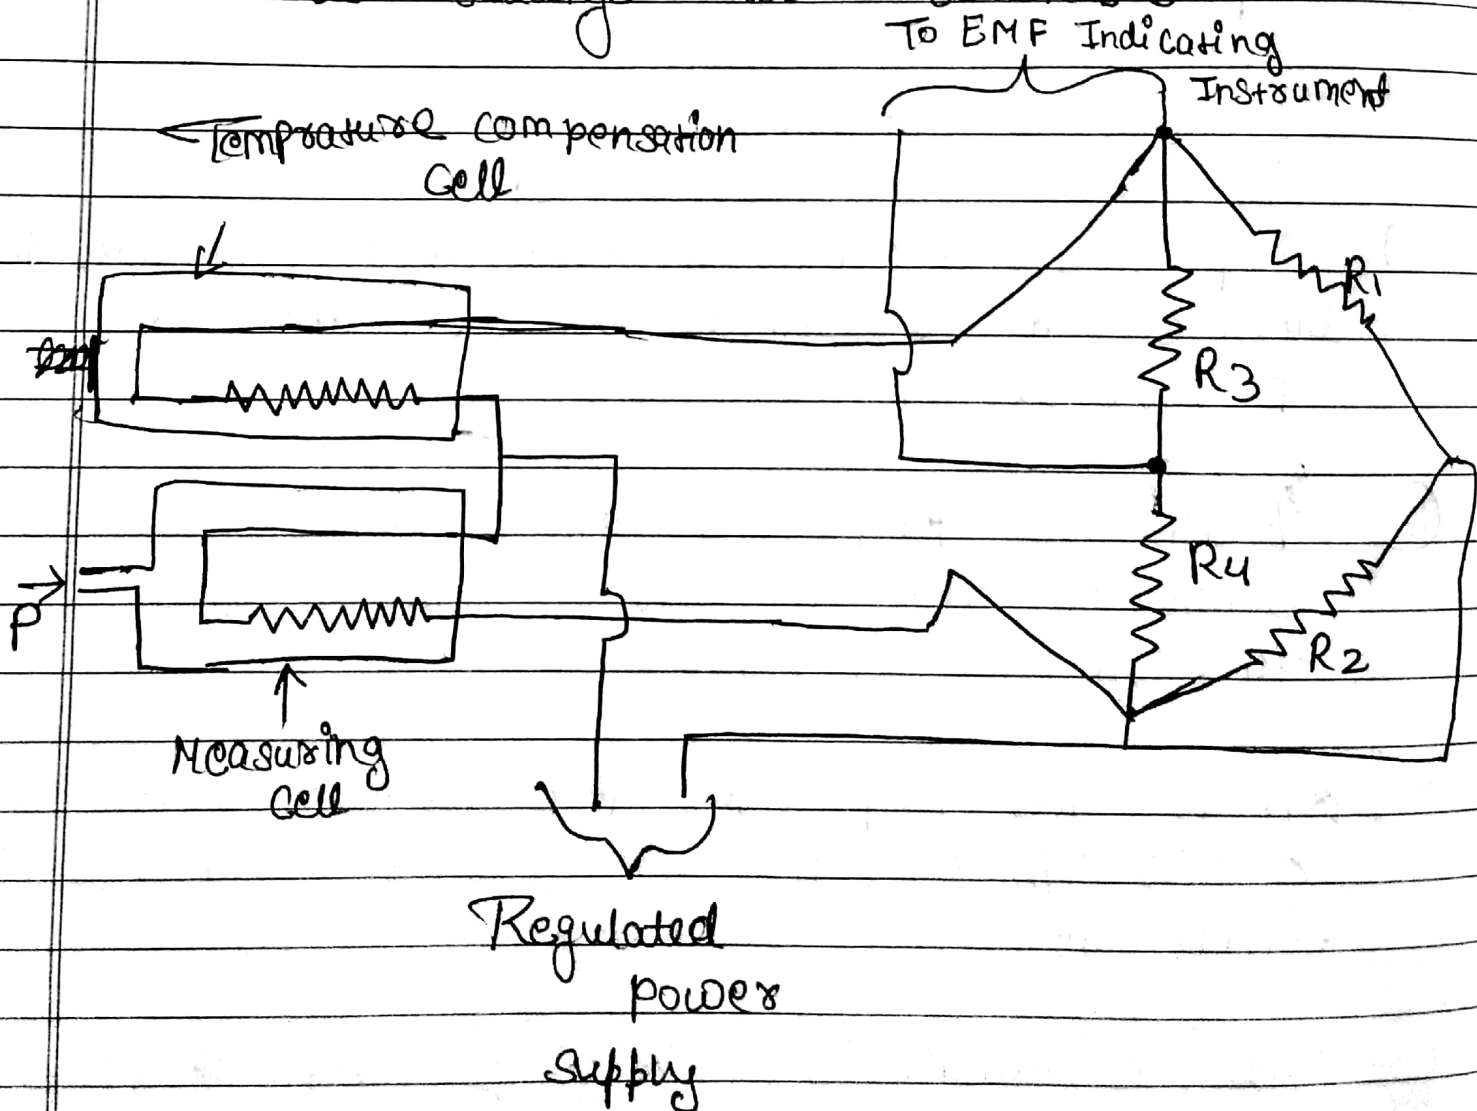 To EMF Indicating
Instrument
Temprature compensation
Cell
R1
R3
R4
R2
P
Measuring
Cell
Regulated
power
supply